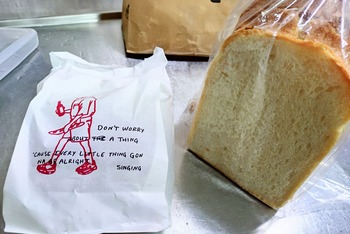 DON'T WORRY
ABOUT THE A THING
'CAUSE EVERY LITTLE THING GON
NA BE ALRIGHT
SINGING